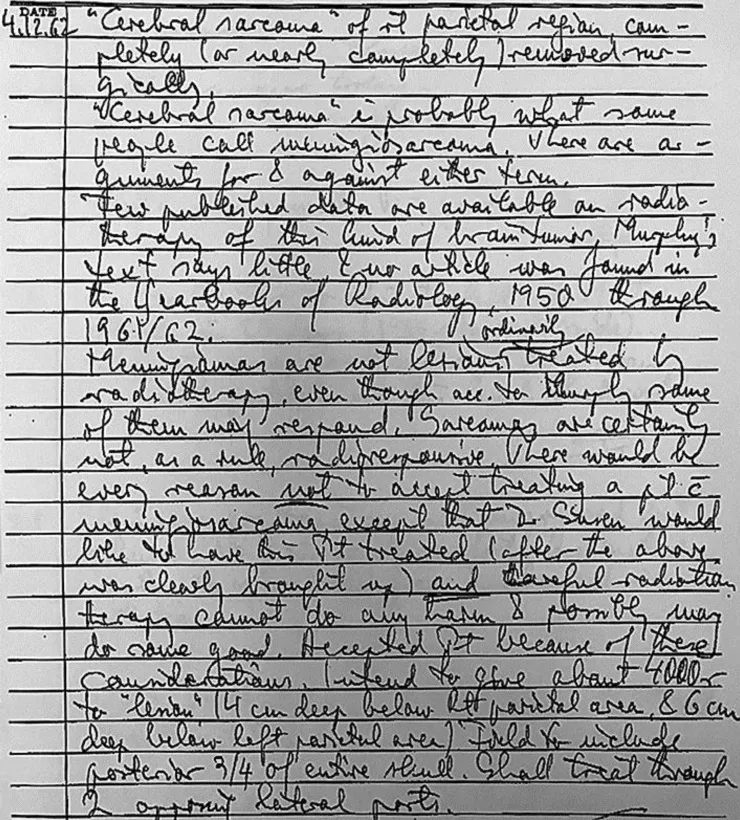 DATE
4.12.62 "Cerebral sarcoma" of rt parietal region, com-
pletely (or nearly completely) removed sur-
gically.
"Cerebral sarcoma" is probably what some
people call meningiosarcoma. There are ar-
guments for & against either term.
Few published data are available on radio-
therapy of this kind of brain tumor, Murphy's
text says little, & no article was found in
the Yearbooks of Radiology, 1950 through
1961/62.
ordinarily
Meningiomas are not lesions treated by
radiotherapy, even though acc. to Murphy some
of them may respond. Sarcomas are certainly
not, as a rule, radioresponsive. There would be
every reason not to accept treating a pt c̄
meningiosarcoma, except that Dr. would
like to have this Pt treated (after the above
was clearly brought up) and careful radiation
therapy cannot do any harm & possibly may
do some good. Accepted Pt because of these
considerations. Intend to give about 4000 r
to "lesion" (4 cm deep below Rt parietal area, & 6 cm
deep below left parietal area) Field to include
posterior 3/4 of entire skull. Shall treat through
2 opposing lateral ports.